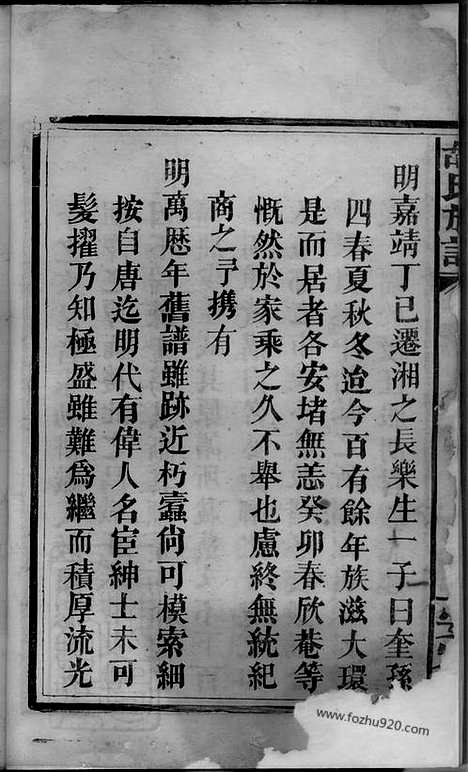 胡氏族譜
明嘉靖丁巳遷湘之長樂生一子曰奎孫
四春夏秋冬迨今百有餘年族滋大環
是而居者各安堵無恙癸卯春欣菴等
慨然於家乘之久不舉也慮終無統紀
商之予擕有
明萬歷年舊譜雖跡近朽蠹尙可模索細
按自唐迄明代有偉人名宦紳士未可
髮擢乃知極盛雖難爲繼而積厚流光
www.fozhu920.com